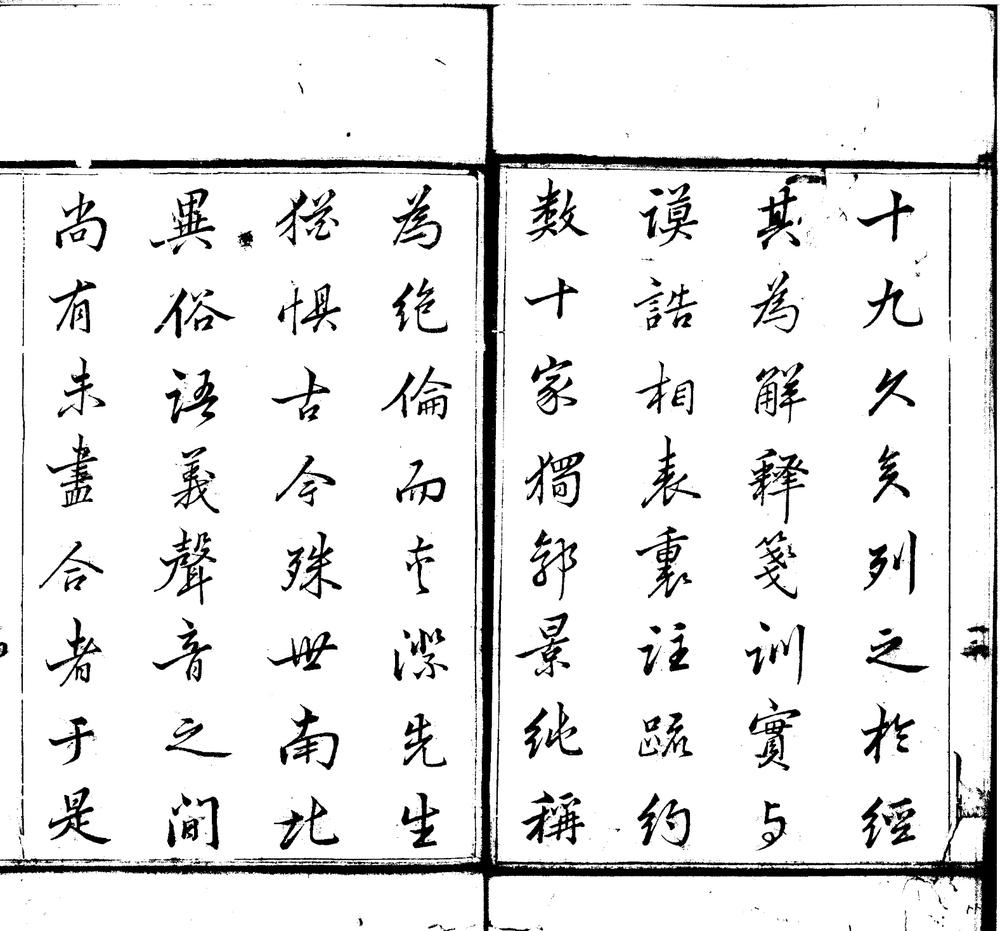 十九久矣列之於經
其為解釋箋訓實与
謨誥相表裏註疏約
數十家獨郭景純稱
為絕倫而夾漈先生
猶惧古今殊世南北
異俗語義聲音之間
尚有未盡合者于是